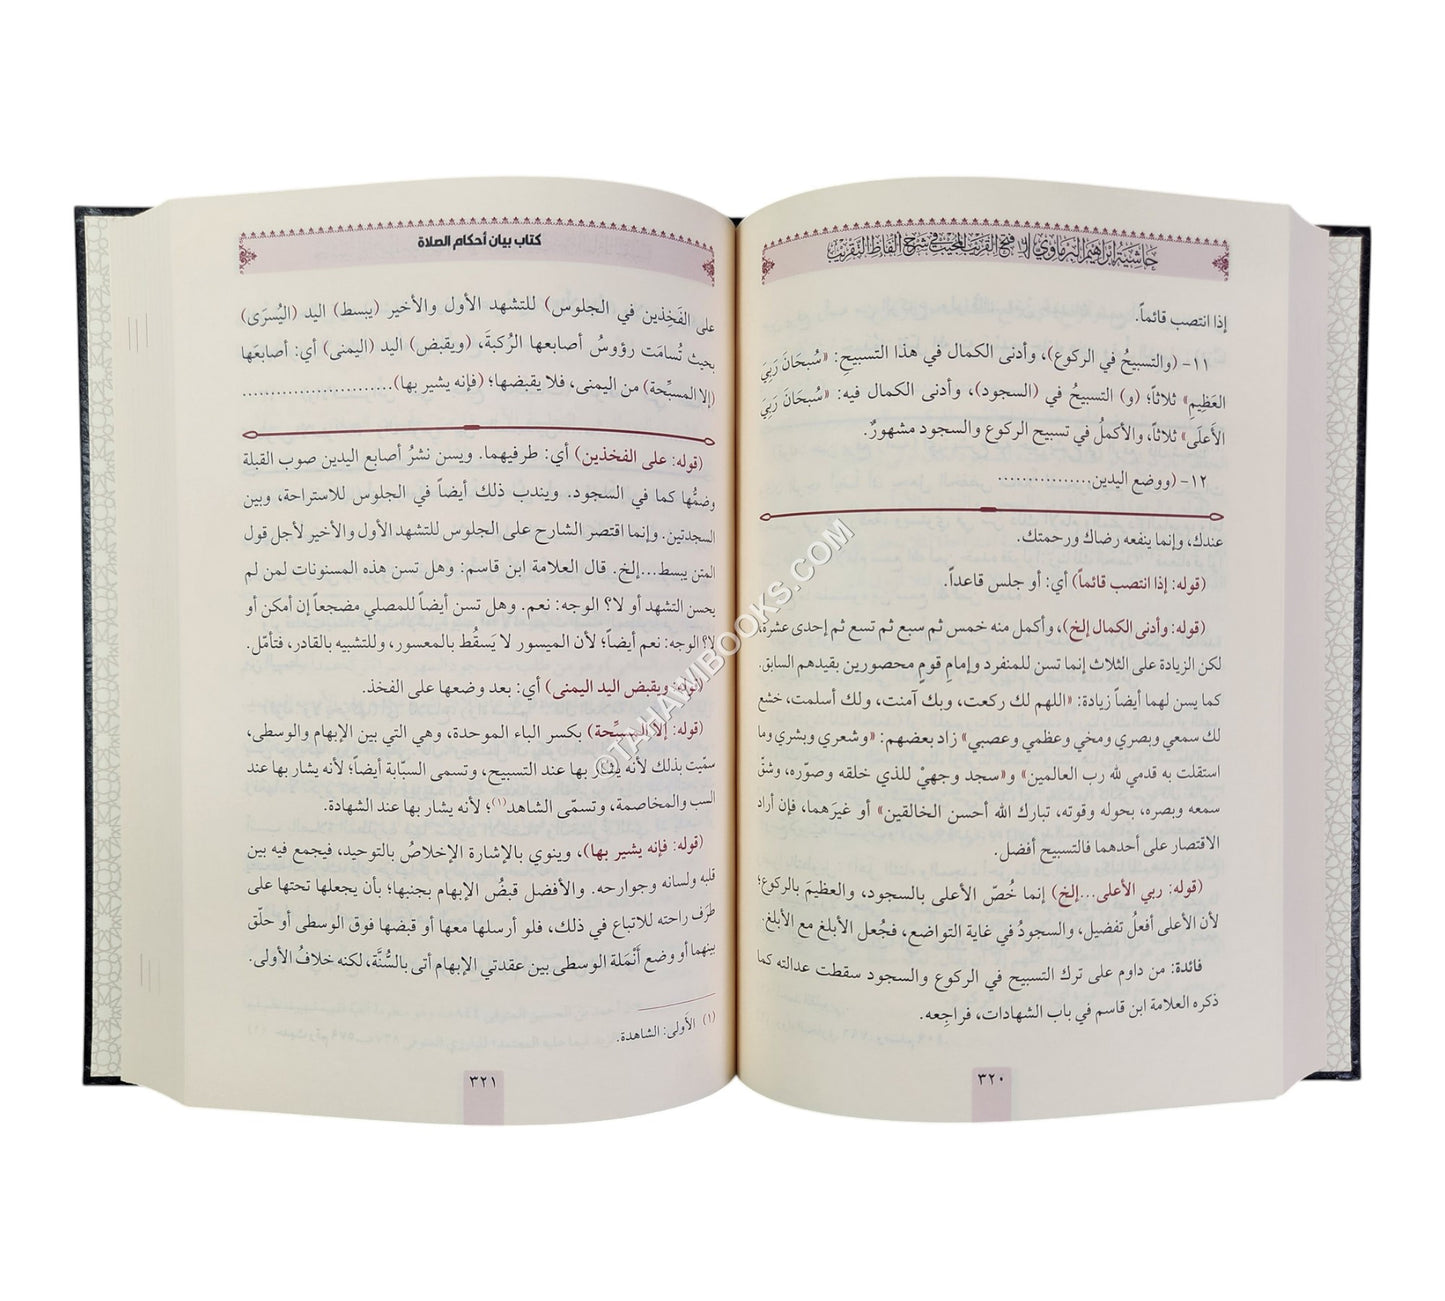 حاشية إبراهيم البرماوي على فتح القريب المجيب في شرح ألفاظ التقريب
إذا انتصب قائماً.
١١- (والتسبيحُ في الركوع)، وأدنى الكمال في هذا التسبيح: «سُبحَانَ رَبِيَ
العَظِيمِ» ثلاثاً؛ (و) التسبيحُ في (السجود)، وأدنى الكمال فيه: «سُبحَانَ رَبِيَ
الأَعلَى» ثلاثاً، والأكملُ في تسبيح الركوع والسجود مشهورٌ.
١٢- (ووضع اليدين...............
عندك، وإنما ينفعه رضاك ورحمتك.
(قوله: إذا انتصب قائماً) أي: أو جلس قاعداً.
(قوله: وأدنى الكمال إلخ)، وأكمل منه خمس ثم سبع ثم تسع ثم إحدى عشرة،
لكن الزيادة على الثلاث إنما تسن للمنفرد وإمامِ قومٍ محصورين بقيدهم السابق.
كما يسن لهما أيضاً زيادة: «اللهم لك ركعت، وبك آمنت، ولك أسلمت، خشع
لك سمعي وبصري ومخي وعظمي وعصبي» زاد بعضهم: «وشعري وبشري وما
استقلت به قدمي لله رب العالمين» و«سجد وجهيْ للذي خلقه وصوّره، وشقّ
سمعه وبصره، بحوله وقوته، تبارك الله أحسن الخالقين» أو غيرَهما، فإن أراد
الاقتصار على أحدهما فالتسبيح أفضل.
(قوله: ربي الأعلى...إلخ) إنما خُصّ الأعلى بالسجود، والعظيمَ بالركوع؛
لأن الأعلى أفعلُ تفضيل، والسجودُ في غاية التواضع، فجُعل الأبلغ مع الأبلغ.
فائدة: من داوم على ترك التسبيح في الركوع والسجود سقطت عدالته كما
ذكره العلامة ابن قاسم في باب الشهادات، فراجِعه.
٣٢٠
كتاب بيان أحكام الصلاة
على الفَخِذين في الجلوس) للتشهد الأول والأخير (يبسط) اليد (اليُسرَى)
بحيث تُسامَت رؤوسُ أصابعها الرُكبةَ، (ويقبض) اليد (اليمنى) أي: أصابعَها
(إلا المسبِّحة) من اليمنى، فلا يقبضها؛ (فإنه يشير بها).....................
(قوله: على الفخذين) أي: طرفيهما. ويسن نشرُ أصابع اليدين صوب القبلة
وضمُّها كما في السجود. ويندب ذلك أيضاً في الجلوس للاستراحة، وبين
السجدتين. وإنما اقتصر الشارح على الجلوس للتشهد الأول والأخير لأجل قول
المتن يبسط...إلخ. قال العلامة ابن قاسم: وهل تسن هذه المسنونات لمن لم
يحسن التشهد أو لا؟ الوجه: نعم. وهل تسن أيضاً للمصلي مضجعاً إن أمكن أو
لا؟ الوجه: نعم أيضاً؛ لأن الميسور لا يَسقُط بالمعسور، وللتشبيه بالقادر، فتأمّل.
(قوله: ويقبض اليد اليمنى) أي: بعد وضعها على الفخذ.
(قوله: إلا المسبِّحة) بكسر الباء الموحدة، وهي التي بين الإبهام والوسطى،
سمّيت بذلك لأنه يشار بها عند التسبيح، وتسمى السبّابة أيضاً؛ لأنه يشار بها عند
السب والمخاصمة، وتسمّى الشاهد(١)؛ لأنه يشار بها عند الشهادة.
(قوله: فإنه يشير بها)، وينوي بالإشارة الإخلاصُ بالتوحيد، فيجمع فيه بين
قلبه ولسانه وجوارحه. والأفضل قبضُ الإبهام بجنبها؛ بأن يجعلها تحتها على
طرَف راحته للاتباع في ذلك، فلو أرسلها معها أو قبضها فوق الوسطى أو حلّق
بينهما أو وضع أَنْمَلة الوسطى بين عقدتي الإبهام أتى بالسُّنَّة، لكنه خلافُ الأولى.
(١) الأَولى: الشاهدة.
٣٢١
©TAHAMIBOOKS.COM